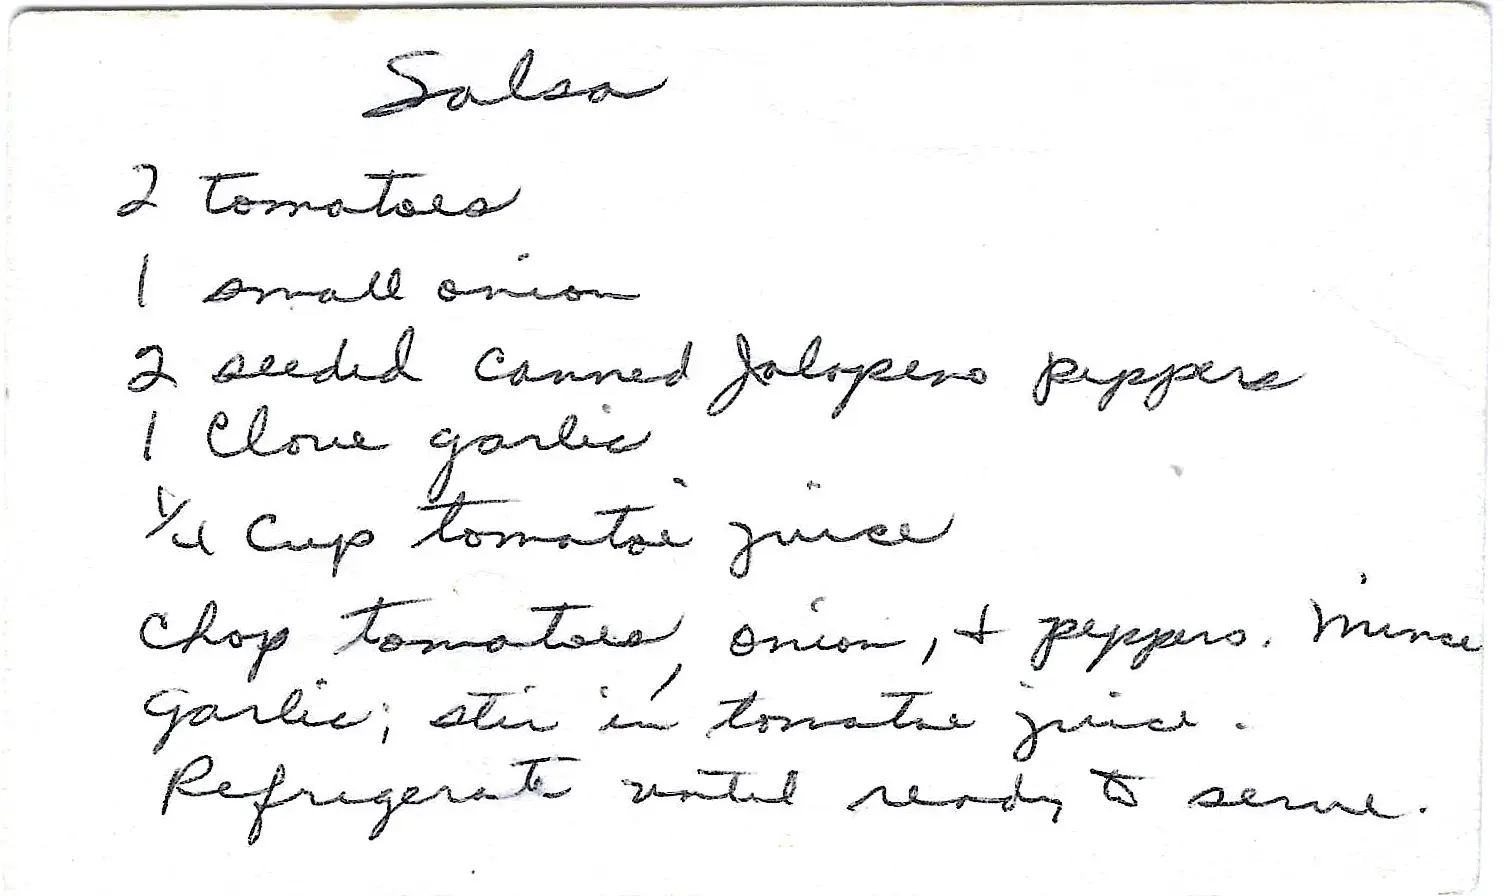 Salsa
2 tomatoes
1 small onion
2 seeded canned Jalapeno peppers
1 Clove garlic
1/4 Cup tomatoe juice
Chop tomatoes, onion, + peppers. Mince
Garlic; stir in tomatoe juice.
Refrigerate until ready to serve.